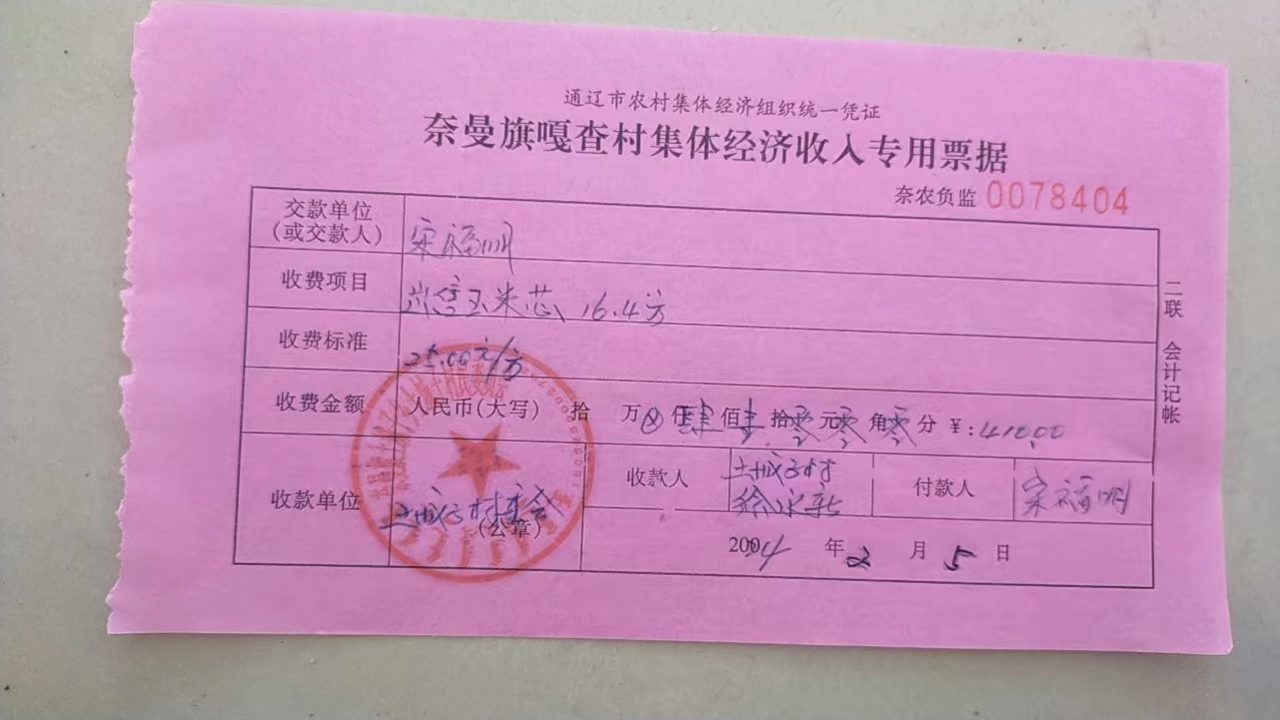 通辽市农村集体经济组织统一凭证
奈曼旗嘎查村集体经济收入专用票据
奈农负监 0078404
交款单位
(或交款人) 宋福明
收费项目 出售玉米芯 16.4方
收费标准 25.00元/方
收费金额 人民币(大写) 拾 万⊗仟肆佰壹拾零元零角零分 ¥:410.00
收款单位 土城子村委会
(公章)
收款人 土城子村
徐永新
付款人 宋福明
2004年2月5日
二联 会计记帐